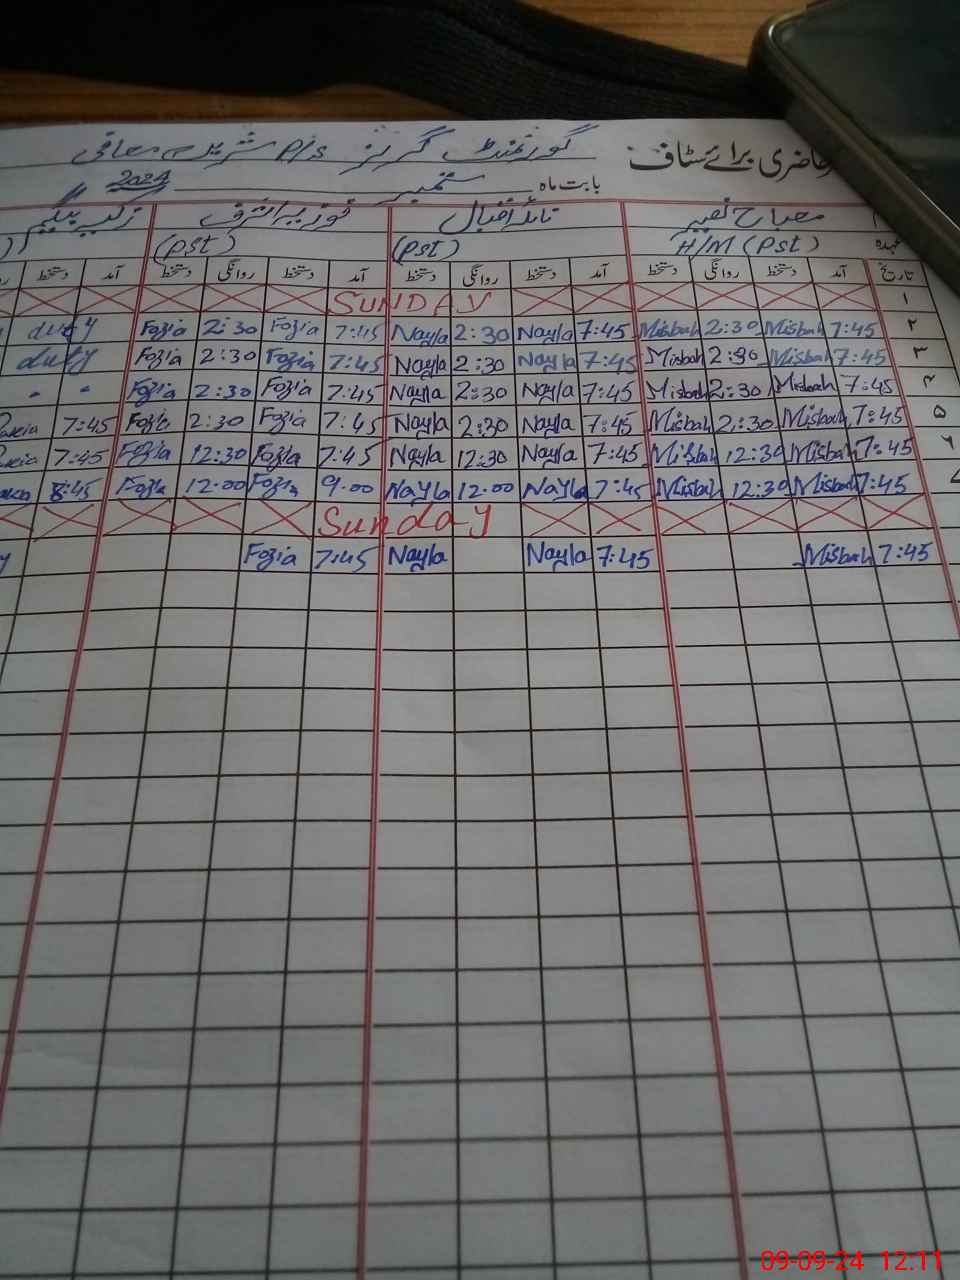 حاضری برائے سٹاف گورنمنٹ گرلز P/S
بابت ماہ ستمبر 2024
مصباح نصیر نائلہ اقبال فوزیہ اشرف
عہدہ H/M (Pst) (Pst) (Pst)
تاریخ آمد دستخط روانگی دستخط آمد دستخط روانگی دستخط آمد دستخط روانگی دستخط آمد دستخط
۱ SUNDAY
۲ 7:45 Misbah 2:30 Misbah 7:45 Nayla 2:30 Nayla 7:45 Fozia 2:30 Fozia duty
۳ 7:45 Misbah 2:30 Misbah 7:45 Nayla 2:30 Nayla 7:45 Fozia 2:30 Fozia duty
۴ 7:45 Misbah 2:30 Misbah 7:45 Nayla 2:30 Nayla 7:45 Fozia 2:30 Fozia
۵ 7:45 Misbah 2:30 Misbah 7:45 Nayla 2:30 Nayla 7:45 Fozia 2:30 Fozia 7:45
۶ 7:45 Misbah 12:30 Misbah 7:45 Nayla 12:30 Nayla 7:45 Fozia 12:30 Fozia 7:45
۷ 7:45 Misbah 12:30 Misbah 7:45 Nayla 12:00 Nayla 9:00 Fozia 12:00 Fozia 8:45
Sunday
7:45 Misbah 7:45 Nayla Nayla 7:45 Fozia
09-09-24 12:11